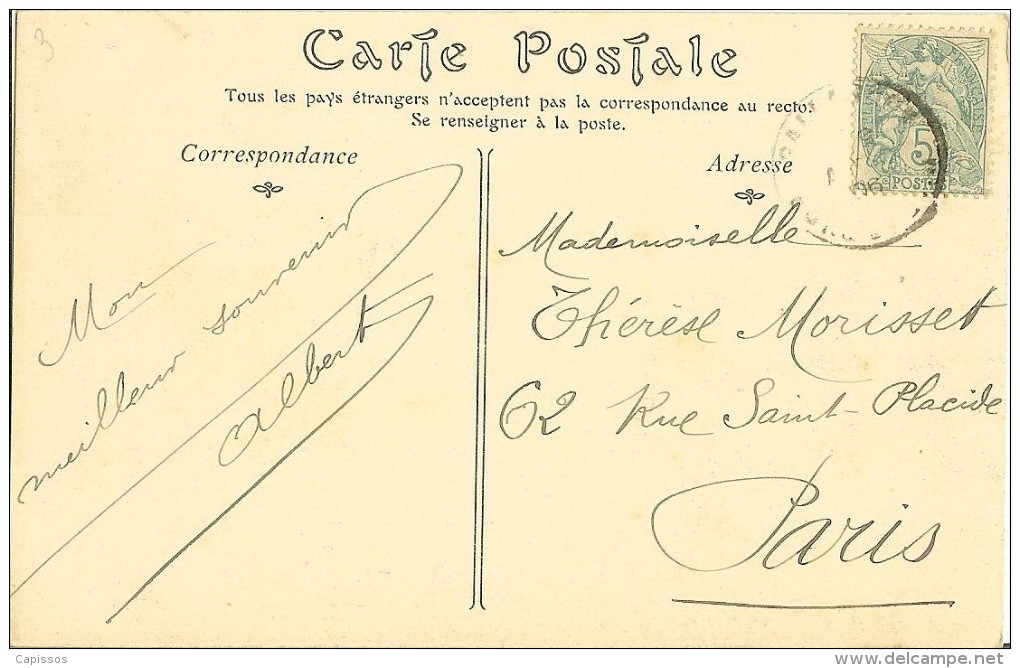 3
Carte Postale
Tous les pays étrangers n'acceptent pas la correspondance au recto.
Se renseigner à la poste.
Correspondance
Adresse
5
POSTES
06
Mon
meilleur souvenir
Albert
Mademoiselle
Thérèse Morisset
62 Rue Saint-Placide
Paris
Capissos
delcampe.net